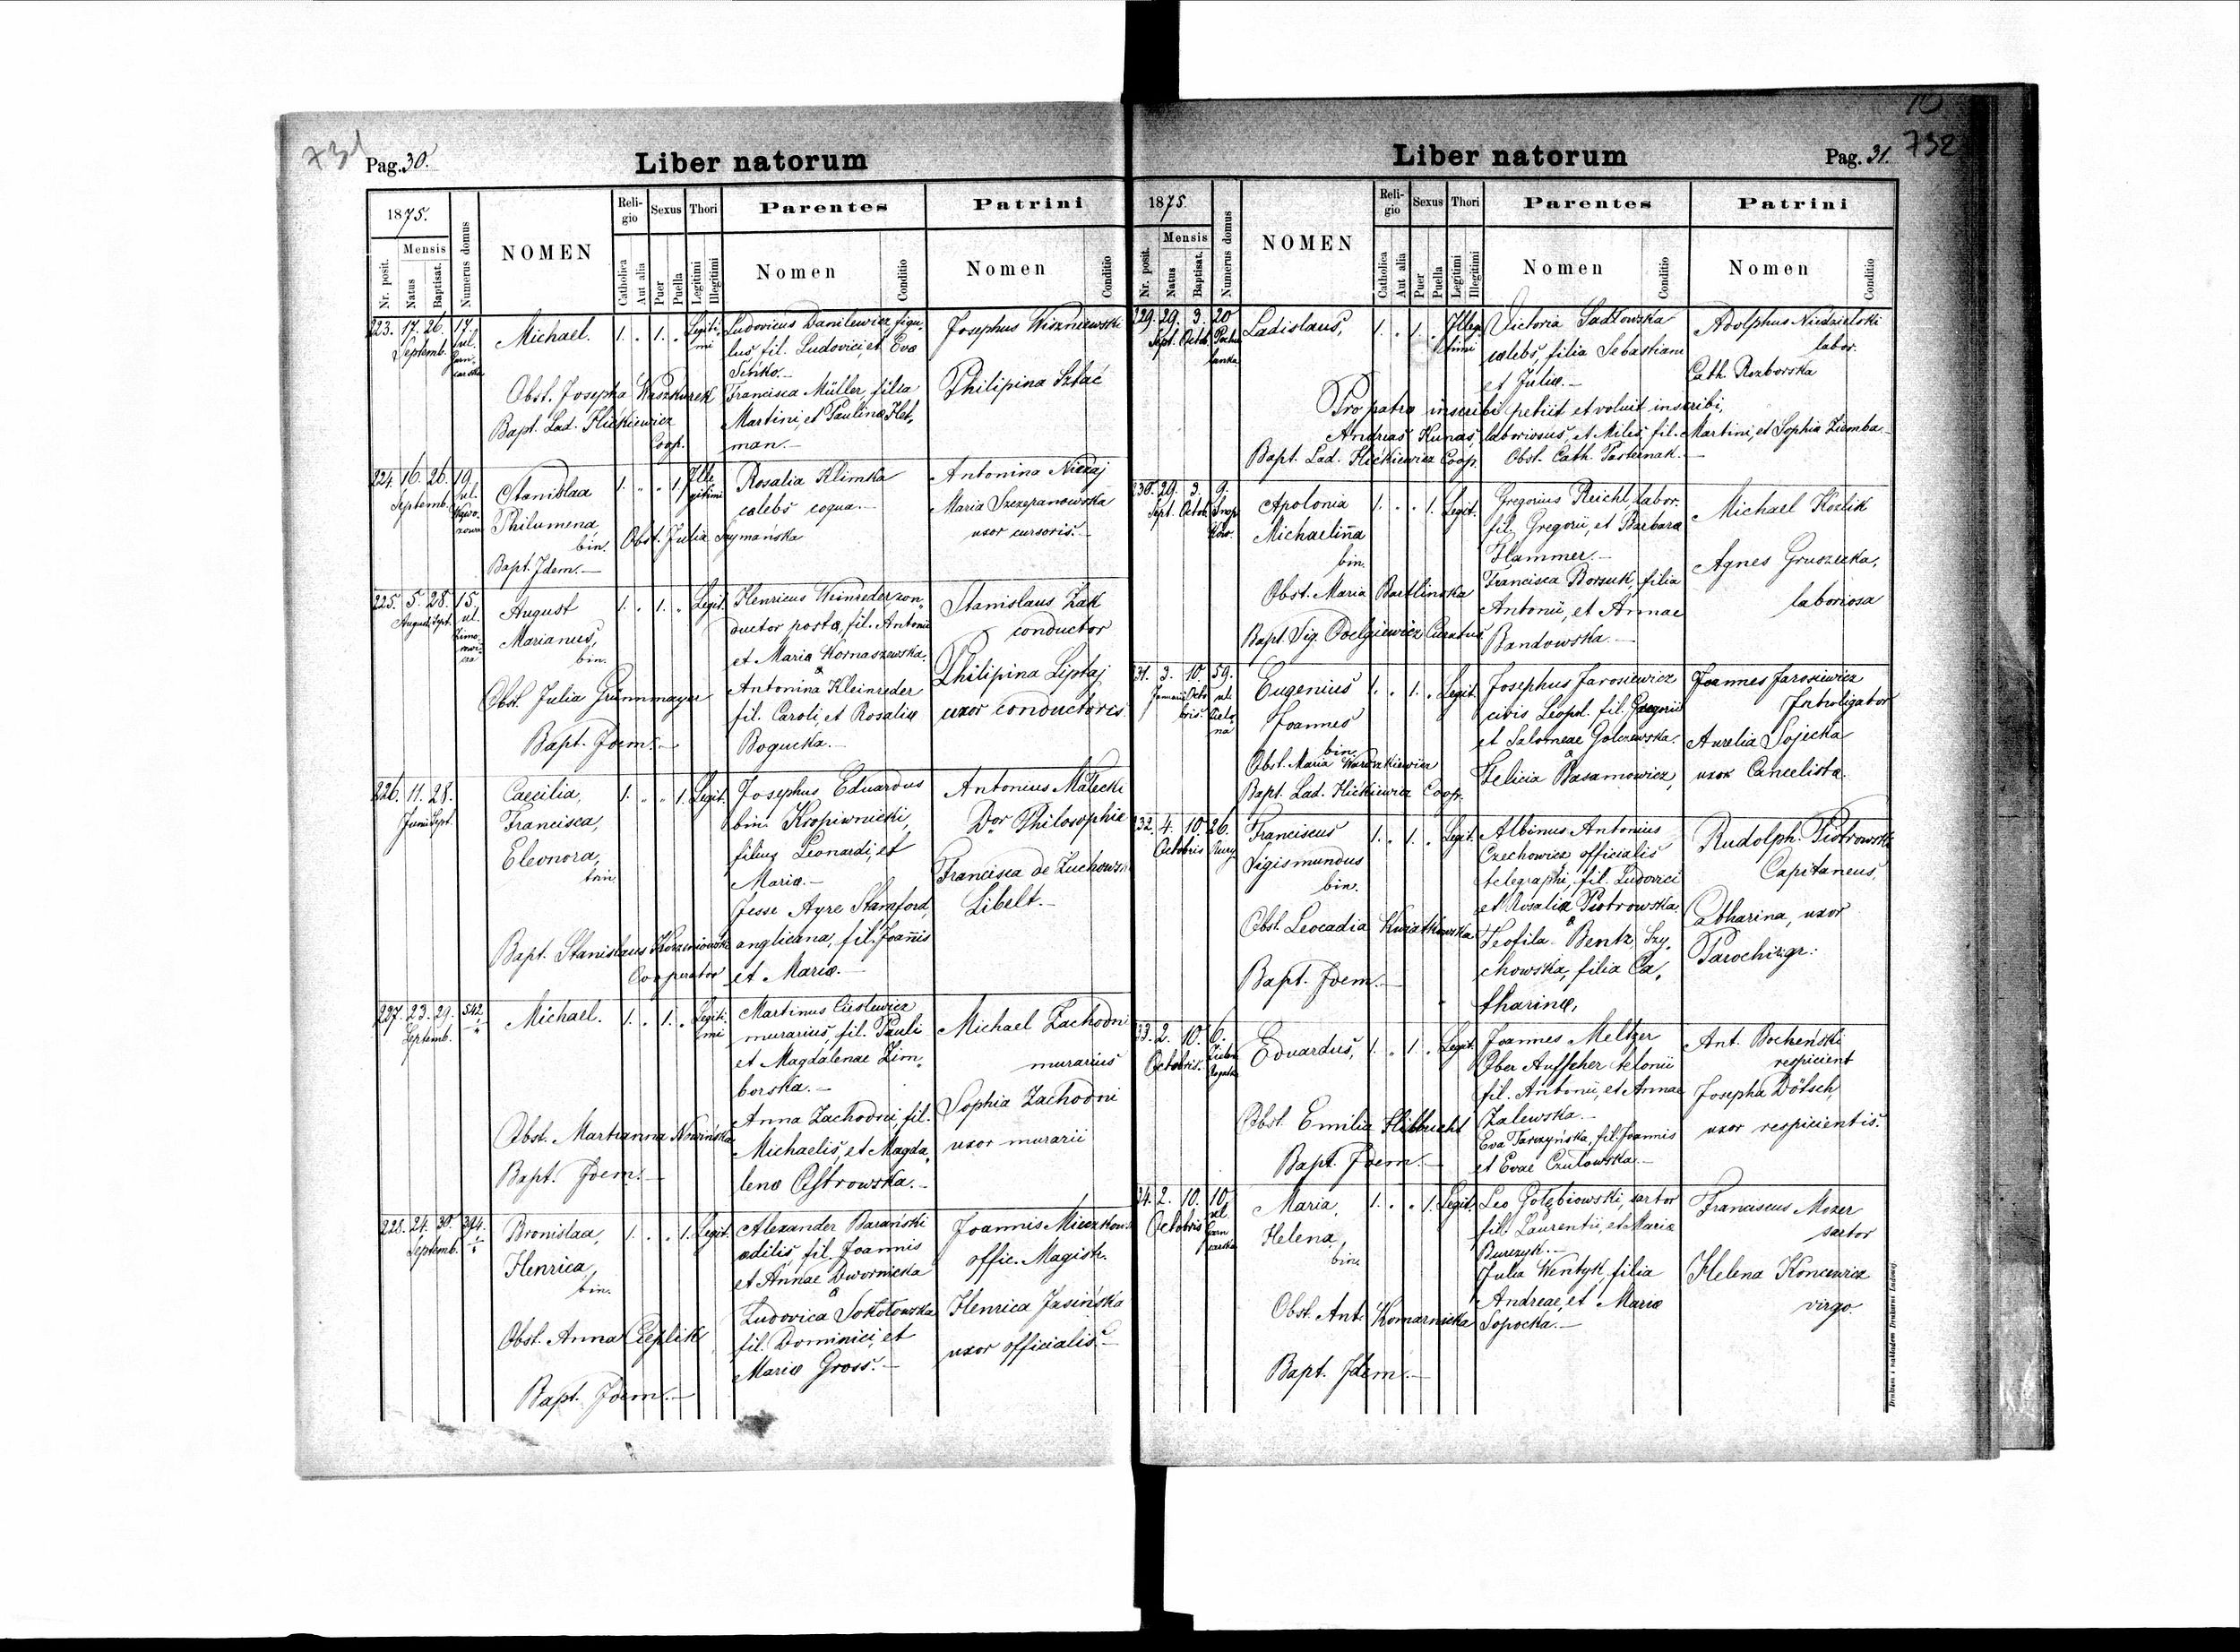 731
Pag. 30.
Liber natorum
1875.
Mensis
Nr. posit.
Natus
Baptisat.
Numerus domus
NOMEN
Religio
Catholica
Aut alia
Sexus
Puer
Puella
Thori
Legitimi
Illegitimi
Parentes
Nomen
Conditio
Patrini
Nomen
Conditio
223. 17. 26. 17.
Septemb. ul.
Michael. 1. " 1. " Legiti-
mi
Ludovicus Danilewicz figu-
lus fil. Ludovici, et Eva
Senko.
Francisca Müller, filia
Martini, et Paulinae Het,
man.
Josephus Wiszniewski
Philipina Sztać
Obst. Josepha Waszkurek
Bapt. Lad. Hićkiewicz
Coop.
224. 16. 26. 19.
Septemb. ul.
Stanislaa
Philumena
bin.
1. " " 1. Ille
gitimi
Rosalia Klimka
caelebs coqua.
Antonina Niezaj
Maria Szczepanowska
uxor cursoris.
Obst. Julia Szymańska
Bapt. Idem.
225. 5. 28. 15.
Augusti Sept. ul.
August
Marianus,
bin.
1. " 1. " Legit.
Henricus Weinreder con-
ductor posta, fil. Antonii
et Maria Kornaszewska.
&
Antonina Kleinreder
fil. Caroli, et Rosaliae
Bogucka.
Stanislaus Zak
conductor
Philipina Liptaj
uxor conductoris
Obst. Julia Grünnmayer
Bapt. Idem.
226. 11. 28.
Junii Sept.
Caecilia,
Francisca,
Eleonora,
trin.
1. " " 1. Legit.
Josephus Eduardus
bin. Kropiwnicki,
filius Leonardi, et
Maria.
Jesse Ayre Stamford,
anglicana, fil. Joannis
et Maria.
Antonius Małecki
Dor Philosophie
Francisca de Zuchows
Libelt.
Bapt. Stanislaus Korzeniowski
Cooperator
227. 23. 29. 542
Septemb. 1/4
Michael. 1. " 1. " Legiti-
mi
Martinus Cieslewicz
murarius, fil. Pauli
et Magdalenae Zim,
borska.
Anna Zachodni, fil.
Michaelis, et Magda,
lena Ostrowska.
Michael Zachodni
murarius
Sophia Zachodni
uxor murarii
Obst. Martianna Nowińska
Bapt. Idem.
228. 24. 30. 394.
Septemb.
Bronislaa,
Henrica,
bin.
1. " " 1. Legit.
Alexander Barański
aedilis, fil. Joannis
et Annae Dwornicka
&
Ludovica Sokołowska
fil. Dominici, et
Maria Gross.
Joannis Mieczkow
offic. Magist.
Henrica Jasińska
uxor officialis.
Obst. Anna Cieplik
Bapt. Idem.
10
732
Liber natorum
Pag. 31.
1875.
Mensis
Nr. posit.
Natus
Baptisat.
Numerus domus
NOMEN
Religio
Catholica
Aut alia
Sexus
Puer
Puella
Thori
Legitimi
Illegitimi
Parentes
Nomen
Conditio
Patrini
Nomen
Conditio
229. 29. 3. 20
Sept. Octob.
Ladislaus, 1. " 1. " Illegi
timi
Victoria Sadłowska
caelebs, filia Sebastiani
et Julia.
Adolphus Niedzielski
labor.
Cath. Rozborska
Pro patre inscribi petiit et voluit inscribi,
Andreas Kunas, laboriosus, et Miles, fil. Martini, et Sophia Ziemba.
Bapt. Lad. Hićkiewicz Coop. Obst. Cath. Pasternak.
230. 29. 3. 9.
Sept. Octob.
Apolonia
Michaelina
bin.
1. " " 1. Legit.
Gregorius Reichl, labor.
fil. Gregorii, et Barbara
Hammer.
Francisca Borsuk, filia
Antonii, et Annae
Bandowska
Michael Kozlik
Agnes Gruszecka,
laboriosa
Obst. Maria Bartlinska
Bapt. Sig. Odelgiewicz Curatus
31. 3. 10. 59.
Januarii Octobris. ul.
Eugenius
Joannes
bin.
1. " 1. " Legit.
Josephus Jarosiewicz
civis Leopol. fil. Gregorii
et Salomeae Golczewska.
&
Felicia Basamowicz,
Joannes Jarosiewicz
Introligator
Aurelia Sojecka
uxor Cancelista.
Obst. Maria Waraszkiewicz
Bapt. Lad. Hićkiewicz Coop.
32. 4. 10. 26.
Octobris
Franciscus
Sigismundus
bin.
1. " 1. " Legit.
Albinus Antonius
Czechowicz officialis
telegraphi, fil. Ludovici
et Rosalia Piotrowska.
&
Teofila Bentz Szy,
chowska, filia Ca,
tharinae,
Rudolph. Piotrowski
Capitaneus,
Catharina, uxor
Parochi gr:
Obst. Leocadia Kwiatkowska
Bapt. Idem.
33. 2. 10. 6.
Octobris.
Eduardus, 1. " 1. " Legit.
Joannes Meltzer
Ober Aufseher telonii
fil. Antonii, et Annae
Zalewska.
Eva Tarczyńska, fil. Joannis
et Evae Czułowska.
Ant. Bocheński
respicient
Josepha Dötsch,
uxor respicientis.
Obst. Emilia Hibbricht
Bapt. Idem.
34. 2. 10. 10.
Octobris ul.
Maria,
Helena,
bin.
1. " " 1. Legit.
Leo Gołębiowski, sartor
fil. Laurentii, et Maria
Burczyk.
Julia Wentyk, filia
Andreae, et Maria
Sopocka.
Franciscus Mozer
sartor
Helena Koncewicz
virgo.
Obst. Ant. Komarnicka
Bapt. Idem.